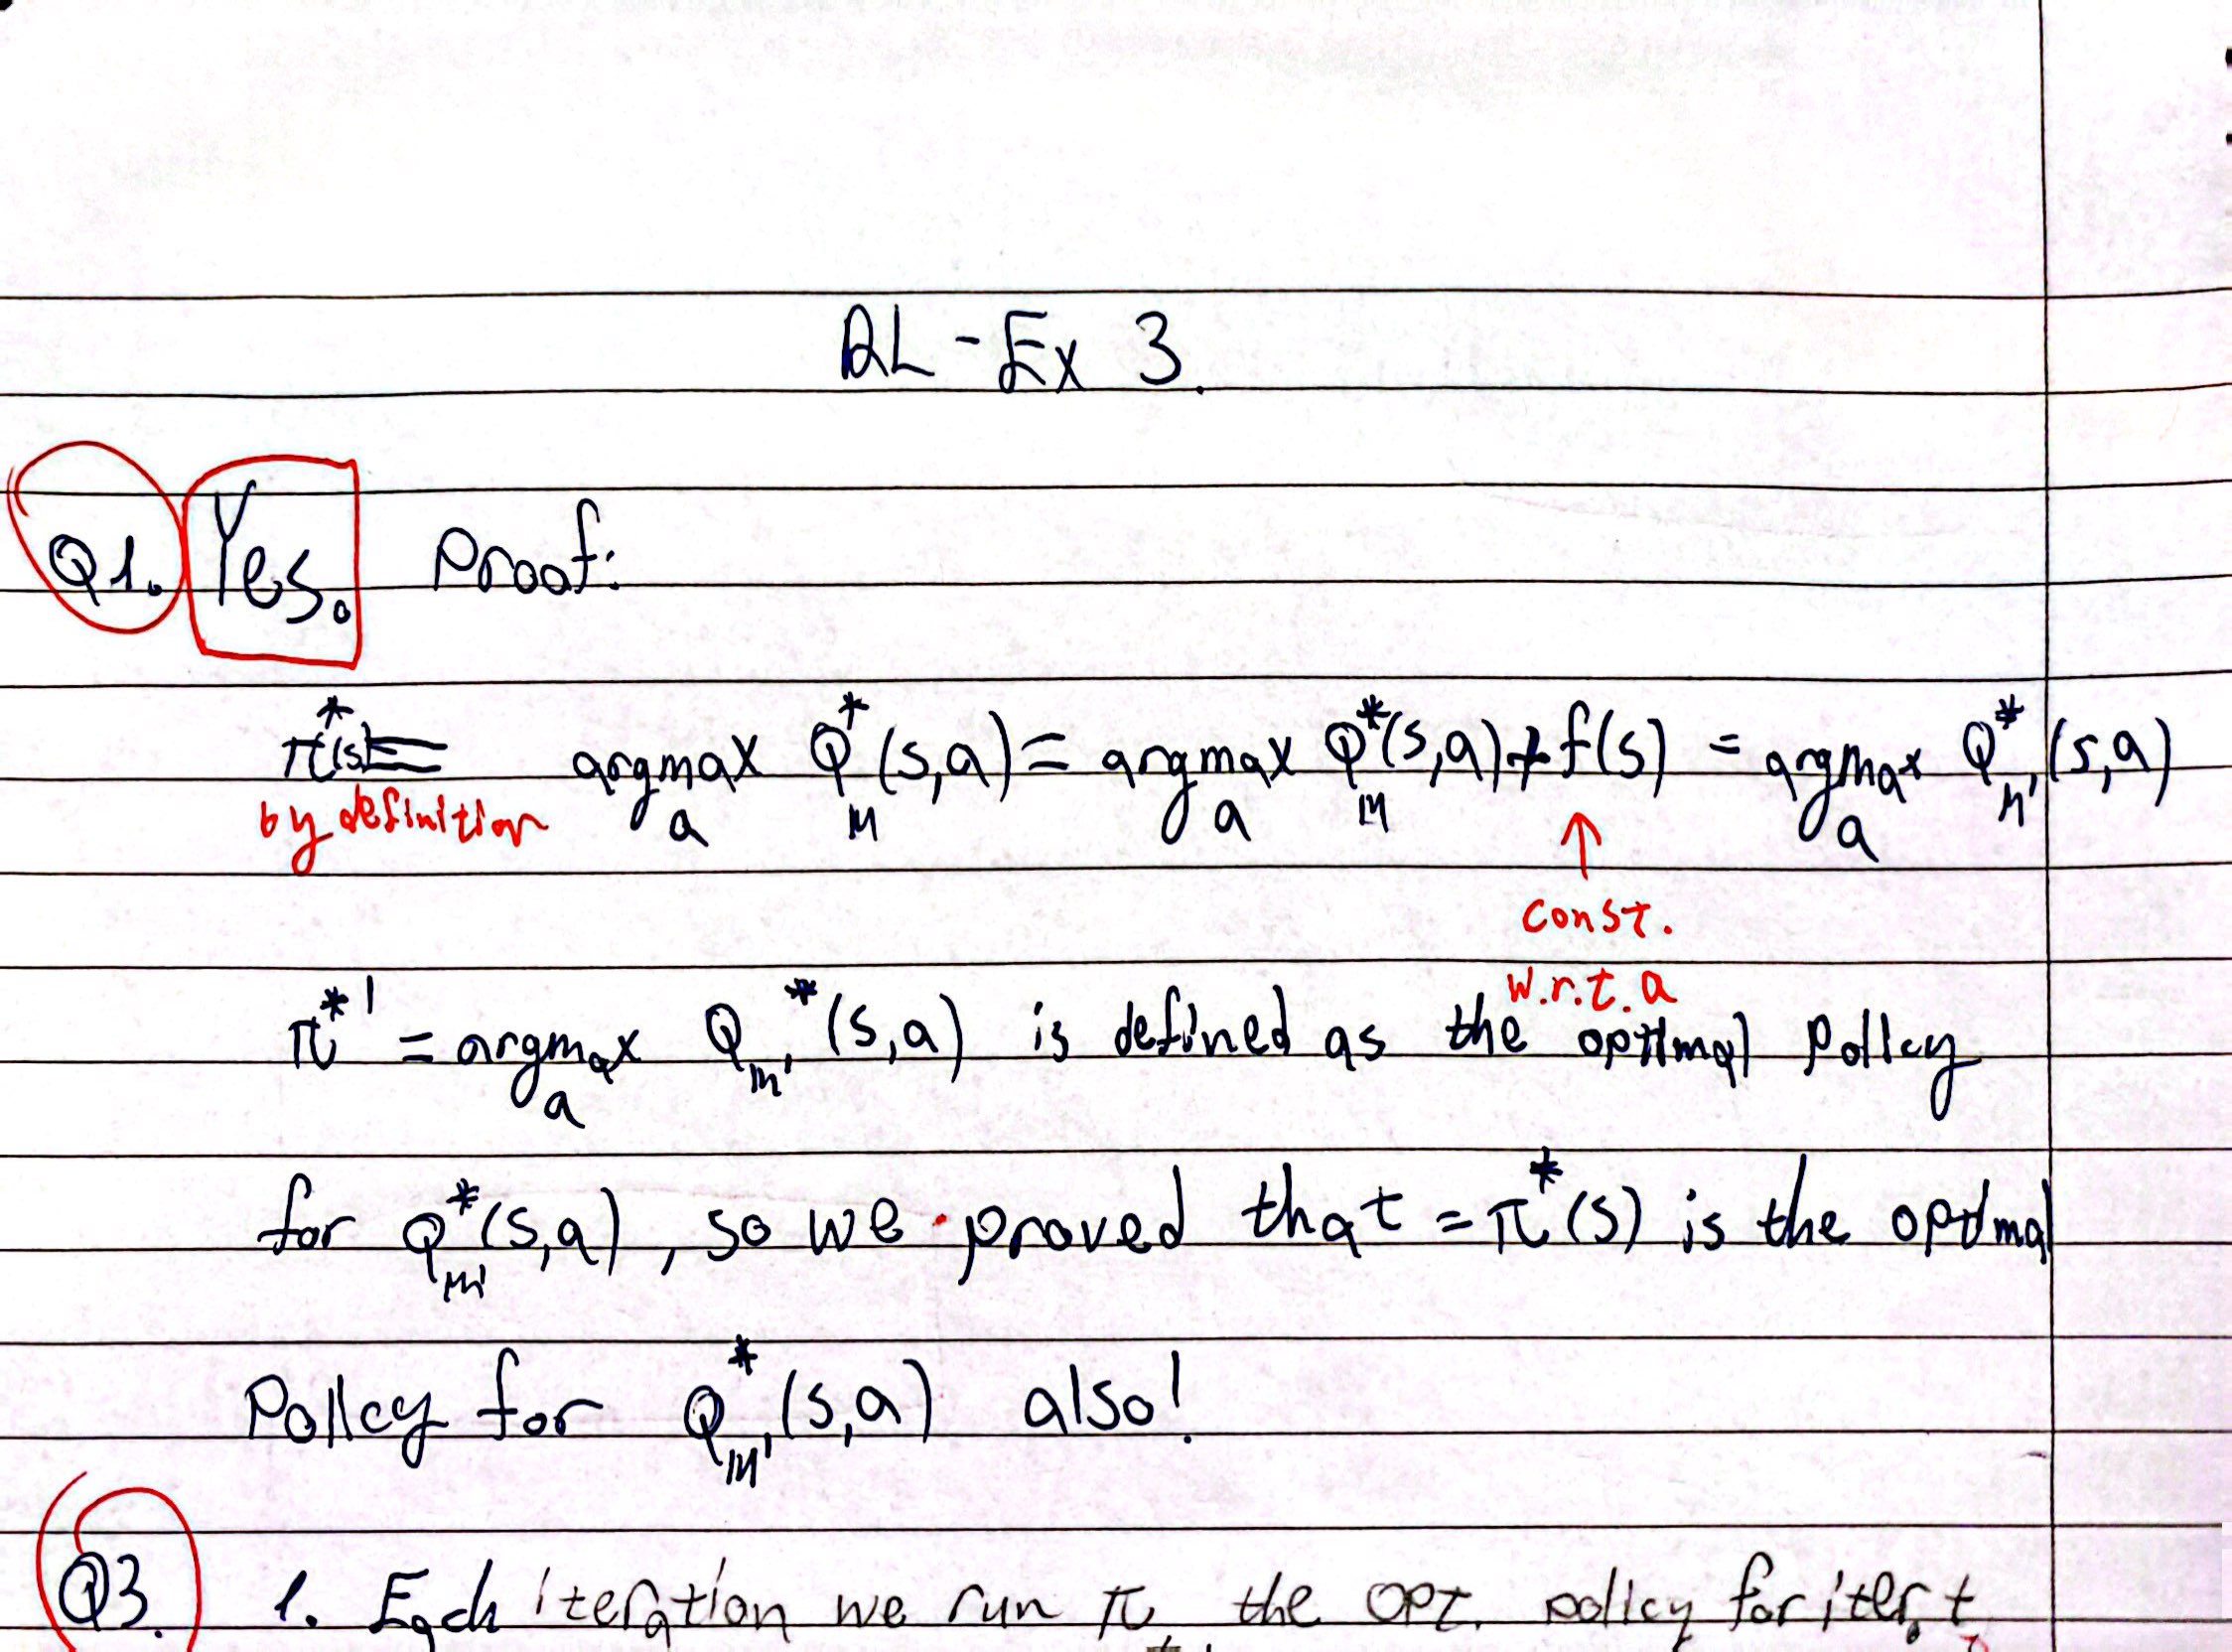 RL - Ex 3.
Q1. Yes. Proof:
π*(s) = argmax_a Q*_M (s,a) = argmax_a Q*_M (s,a) + f(s) = argmax_a Q*_M' (s,a)
by definition
↑
const.
w.r.t. a
π*' = argmax_a Q_M'* (s,a) is defined as the optimal policy
for Q*_M' (s,a), so we proved that = π*(s) is the optimal
Policy for Q*_M' (s,a) also!
Q3. 1. Each iteration we run π the opt. policy for iter. t